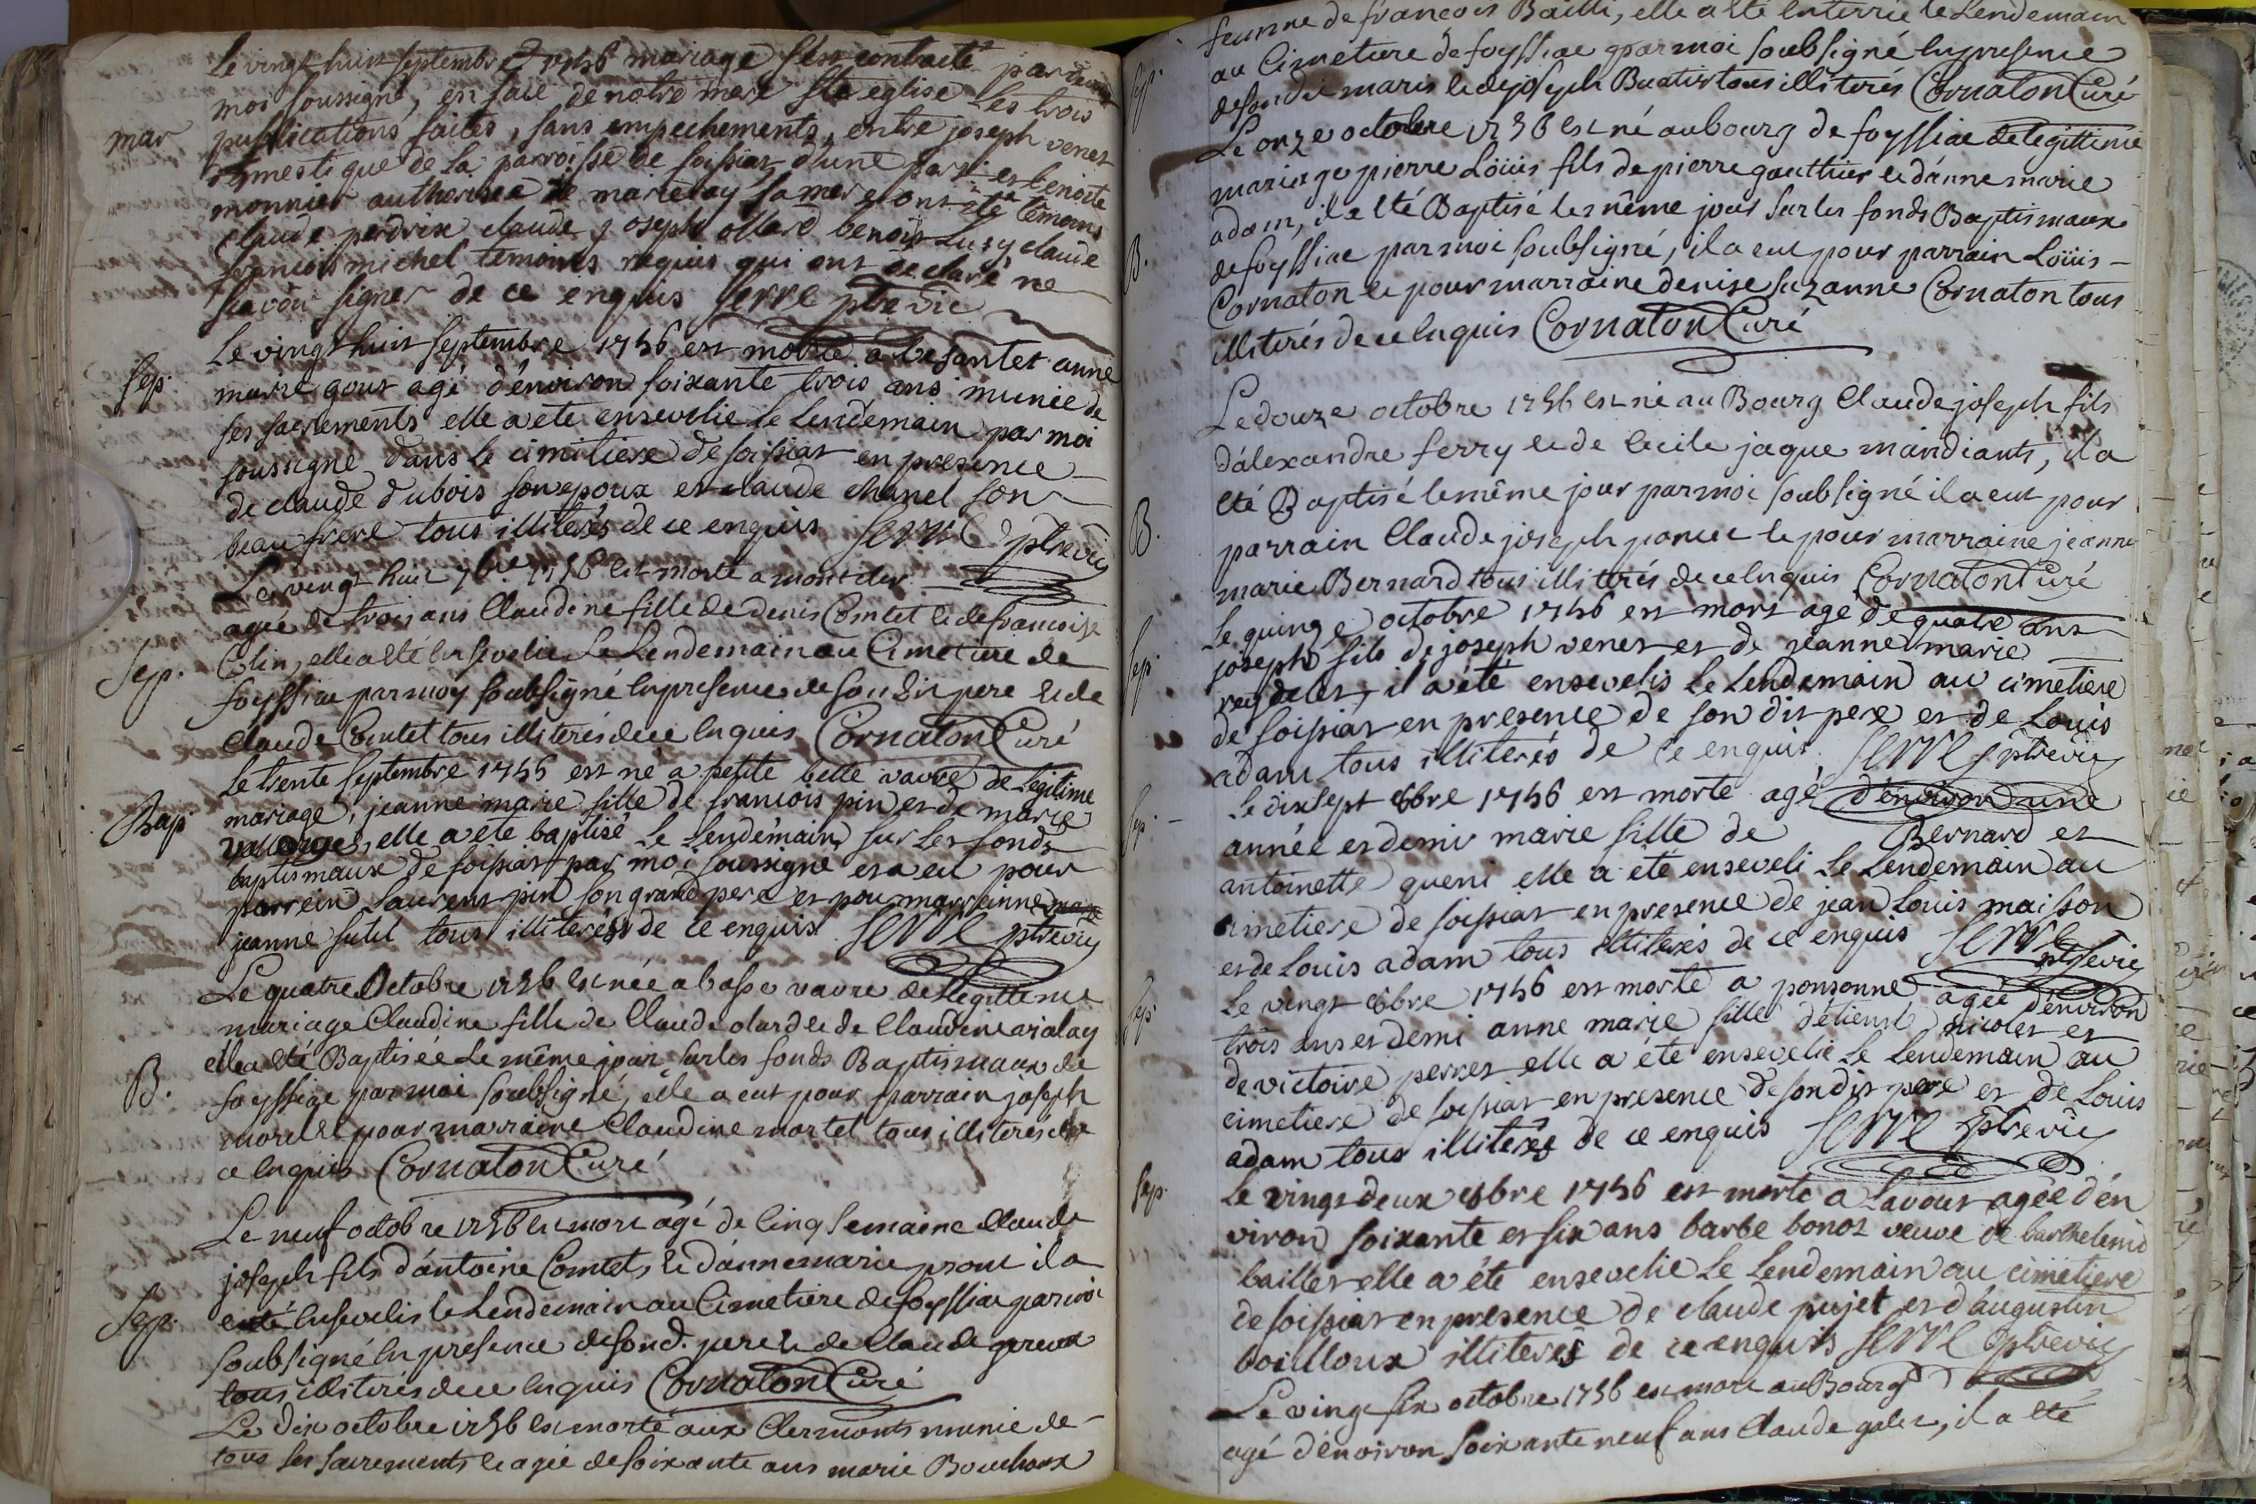 Le vingt huit septembre 1756 mariage s'est contracté par devant
moi soussigné, en face de notre mere Ste eglise Les trois
mar
publications faites, sans empechements, entre joseph venet
domestique de La parroisse de soissiat d'une part et benoite
monnier autherisée de marie lay sa mere ont été témoins
claude perdrix claude joseph ollard benoit Lusy claude
francois michel temoins requis qui ont declaré ne
scavoir signer de ce enquis serre ptre vic
Le vingt huit septembre 1756 est morte a anne
Sep.
marie gout agé d'environ soixante trois ans munie de
ses sacrements elle a ete ensevelie le Lendemain par moi
soussigné dans le cimitiere de soissiat en presence
de claude dubois son epoux et claude chanel son
beau frere tous illiterés de ce enquis serre ptre vic
Le vingt huit 7bre 1756 est morte a
agée de trois ans Claudine fille de denis Comtet et de francoise
Sep.
Colin, elle a eté ensevelie Le Lendemain au Cimetiere de
foyssiac par moy soubsigné en presence de son dit pere et de
Claude Comtet tous illiterés de ce enquis Cornaton Curé
Le trente septembre 1756 est né a petite belle vavre de Legitime
Bap
mariage, jeanne marie fille de francois pin et de marie
elle a ete baptisé Le Lendemain sur Les fonds
baptismaux de soissiat par moi soussigné et a eu pour
parrein Laurent pin son grand pere et pour marrainne
jeanne sutil tous illiterés de ce enquis serre ptre vic
Le quatre Octobre 1756 est née a basse vavre de Legittime
mariage Claudine fille de Claude olard et de Claudine vialay
elle a eté Baptisée Le même jour sur les fonds Baptismaux de
B.
foyssiac par moi soubsigné, elle a eut pour parrain joseph
morel et pour marraine Claudine martel tous illiterés de
ce enquis Cornaton Curé
Le neuf octobre 1756 est mort agé de Cinq semaine Claude
joseph fils d'antoine Comtet et d'anne marie il a
Sep.
eté ensevelis le Lendemain au Cimetiere de foyssiac par moi
soubsigné en presence de sond. pere et de Claude
tous illiterés de ce enquis Cornaton Curé
Le dix octobre 1756 est morte aux Clermonts munie de
tous ses sacrements et agée de soixante ans marie Bouchoux
femme de francois Bailli, elle a eté enterrée le Lendemain
Sep.
au Cimetiere de foyssiac par moi soubsigné en presence
de son dit maris et de joseph Buatier tous illiterés Cornaton Curé
Le onze octobre 1756 est né au bourg de foyssiac de legittime
mariage pierre Loüis fils de pierre gauthier et d'anne marie
adam, il a eté Baptisé les même jour sur les fonds Baptismaux
B.
de foyssiac par moi soubsigné, il a eut pour parrain Loüis
Cornaton et pour marraine denise suzanne Cornaton tous
illiterés de ce enquis Cornaton Curé
Le douze octobre 1756 est né au Bourg Claude joseph fils
d'alexandre ferry et de Cecile jaque mandiants, il a
eté Baptisé le même jour par moi soubsigné il a eut pour
B.
parrain Claude joseph et pour marraine jeanne
marie Bernard tous illiterés de ce enquis Cornaton Curé
Le quinze octobre 1756 est mort agé de quatre ans
Sep.
joseph fils de joseph venet et de jeanne marie
il a été ensevelis Le Lendemain au cimetiere
de soissiat en presence de son dit pere et de Louis
adam tous illiterés de ce enquis serre ptre vic
Le dix sept 8bre 1756 est morte agé d'environ une
Sep.
année et demi marie fille de Bernard et
antoinette queni elle a eté enseveli Le Lendemain au
cimetiere de soissiat en presence de jean Louis maisson
et de Louis adam tous illiterés de ce enquis serre ptre vic
Le vingt 8bre 1756 est morte a ponsonne agée d'environ
Sep.
trois ans et demi anne marie fille d'étienne nicolet et
de victoire perret elle a été ensevelie Le Lendemain au
cimetiere de soissiat en presence de son dit pere et de Louis
adam tous illiterés de ce enquis serre ptre vic
Sep.
Le vingt deux 8bre 1756 est morte a Lavour agée d'en
viron soixante et six ans barbe bonot veuve de barthelemi
baillet elle a été ensevelie Le Lendemain au cimetiere
de soissiat en presence de claude pujet et d'augustin
bouilloux illiterés de ce enquis serre ptre vic
Le vingt six octobre 1756 est mort au Bourg
agé d'environ soixante neuf ans Claude galet, il a eté